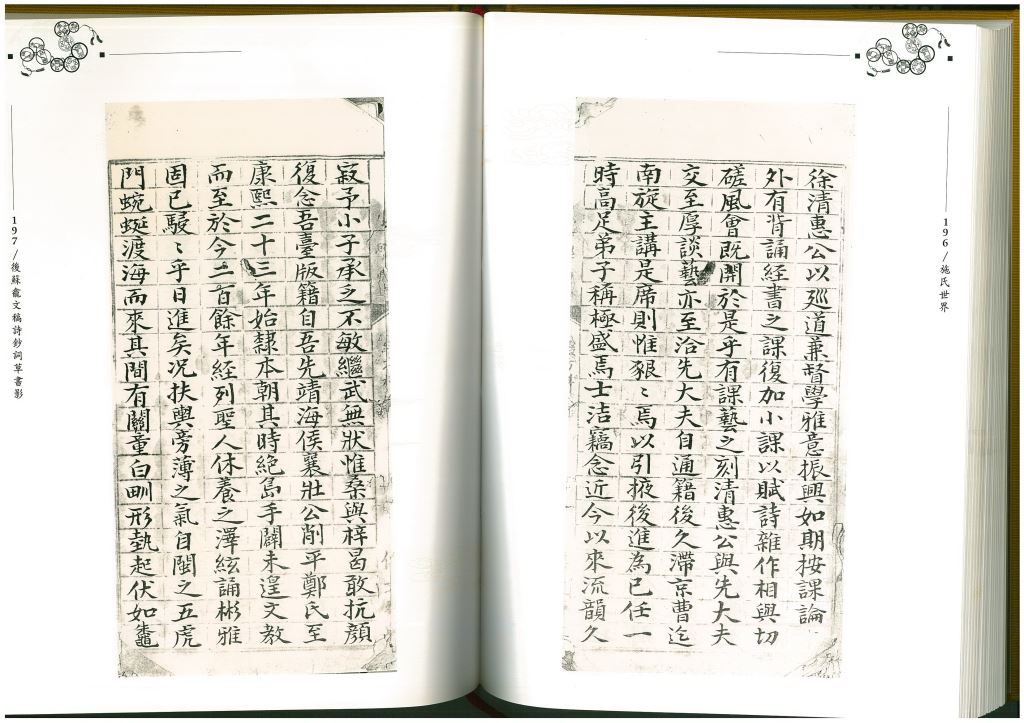 徐清惠公以廵道兼督學雅意振興如期按課論
外有背誦經書之課復加小課以賦詩雜作相與切
磋風會既開於是乎有課藝之刻清惠公與先大夫
交至厚談藝亦至洽先大夫自通籍後久滯京曹迄
南旋主講是席則惟猳〻焉以引掖後進為已任一
時高足弟子稱極盛焉士洁竊念近今以來流韻久
196/施氏世界
寂予小子承乏不敏繼武無狀惟桑與梓曷敢抗顏
復念吾臺版籍自吾先靖海侯襄壯公削平鄭氏至
康熙二十三年始隸本朝其時絶島手闢未遑文教
而至於今二百餘年經列聖人休養之澤絃誦彬雅
固已駸〻乎日進矣况扶輿旁薄之氣自閩之五虎
門蜿蜒渡海而來其間有關童白畎形埶起伏如鼇
197/後蘇龕文稿詩鈔詞草書影